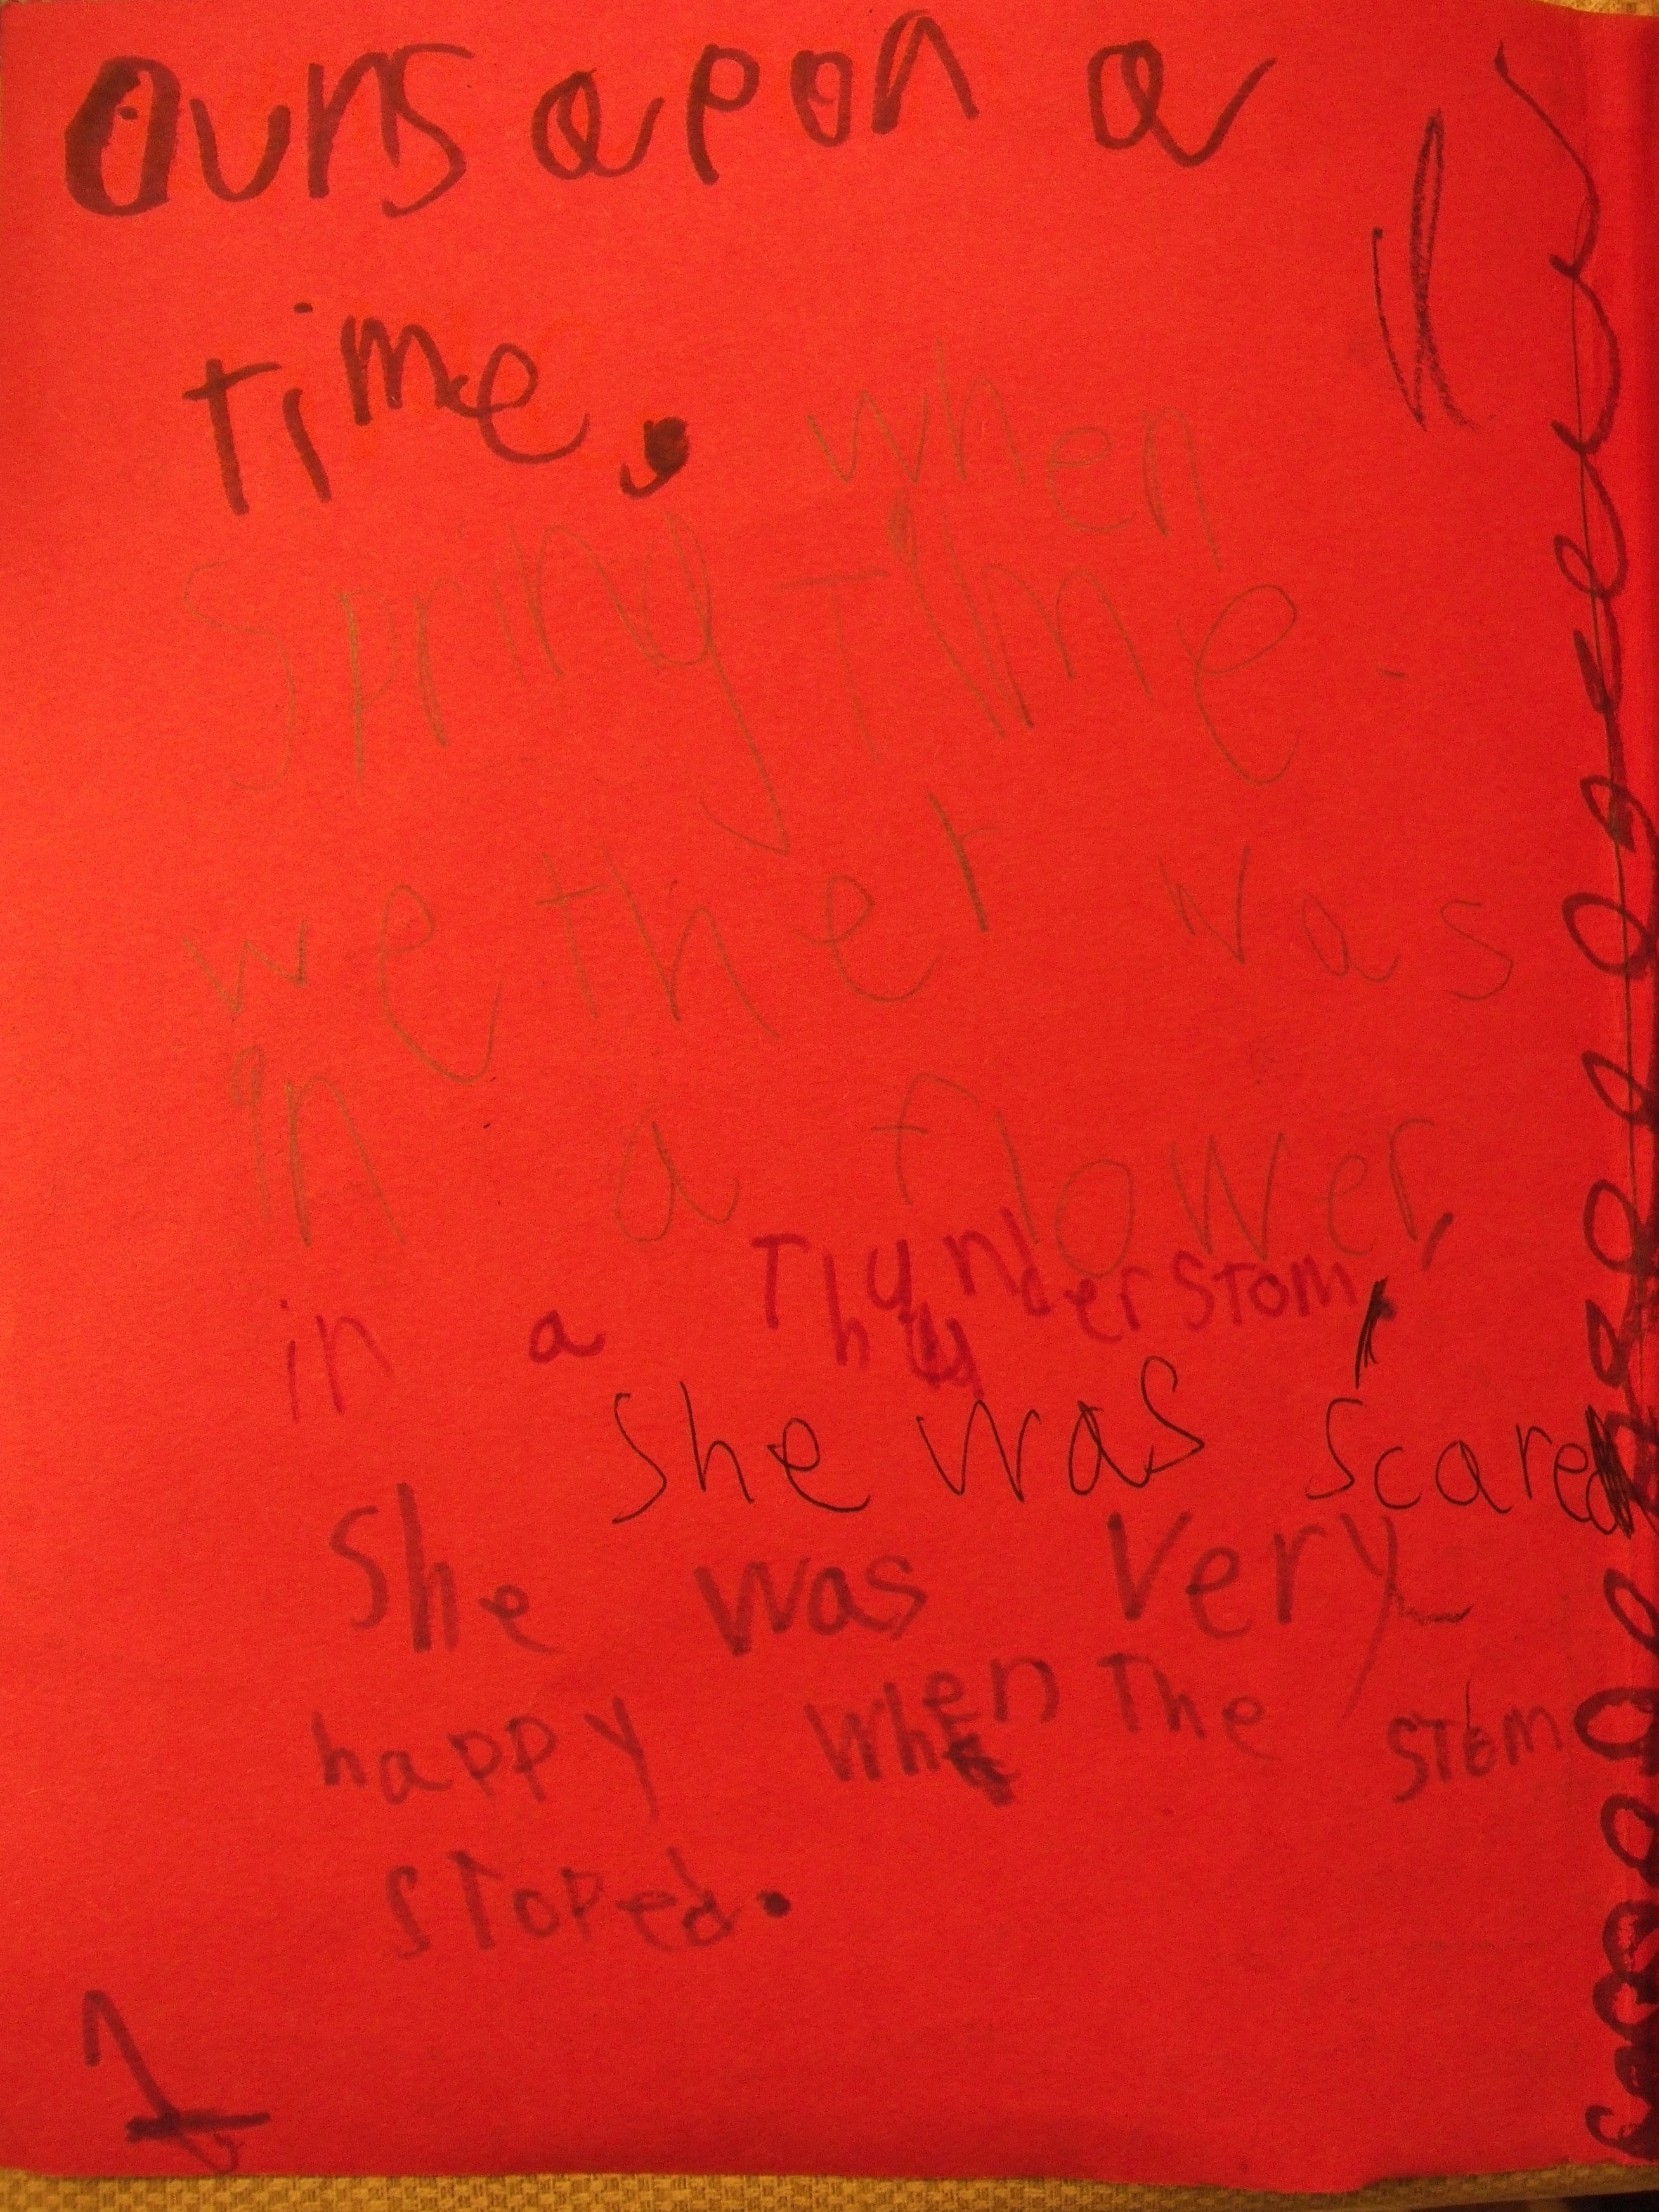 Ours apon a
time. when
Spring Time
wether was
in a flower,
in a Thunder Stom.
She was scared
She was very
happy when The stom
stoped.
1